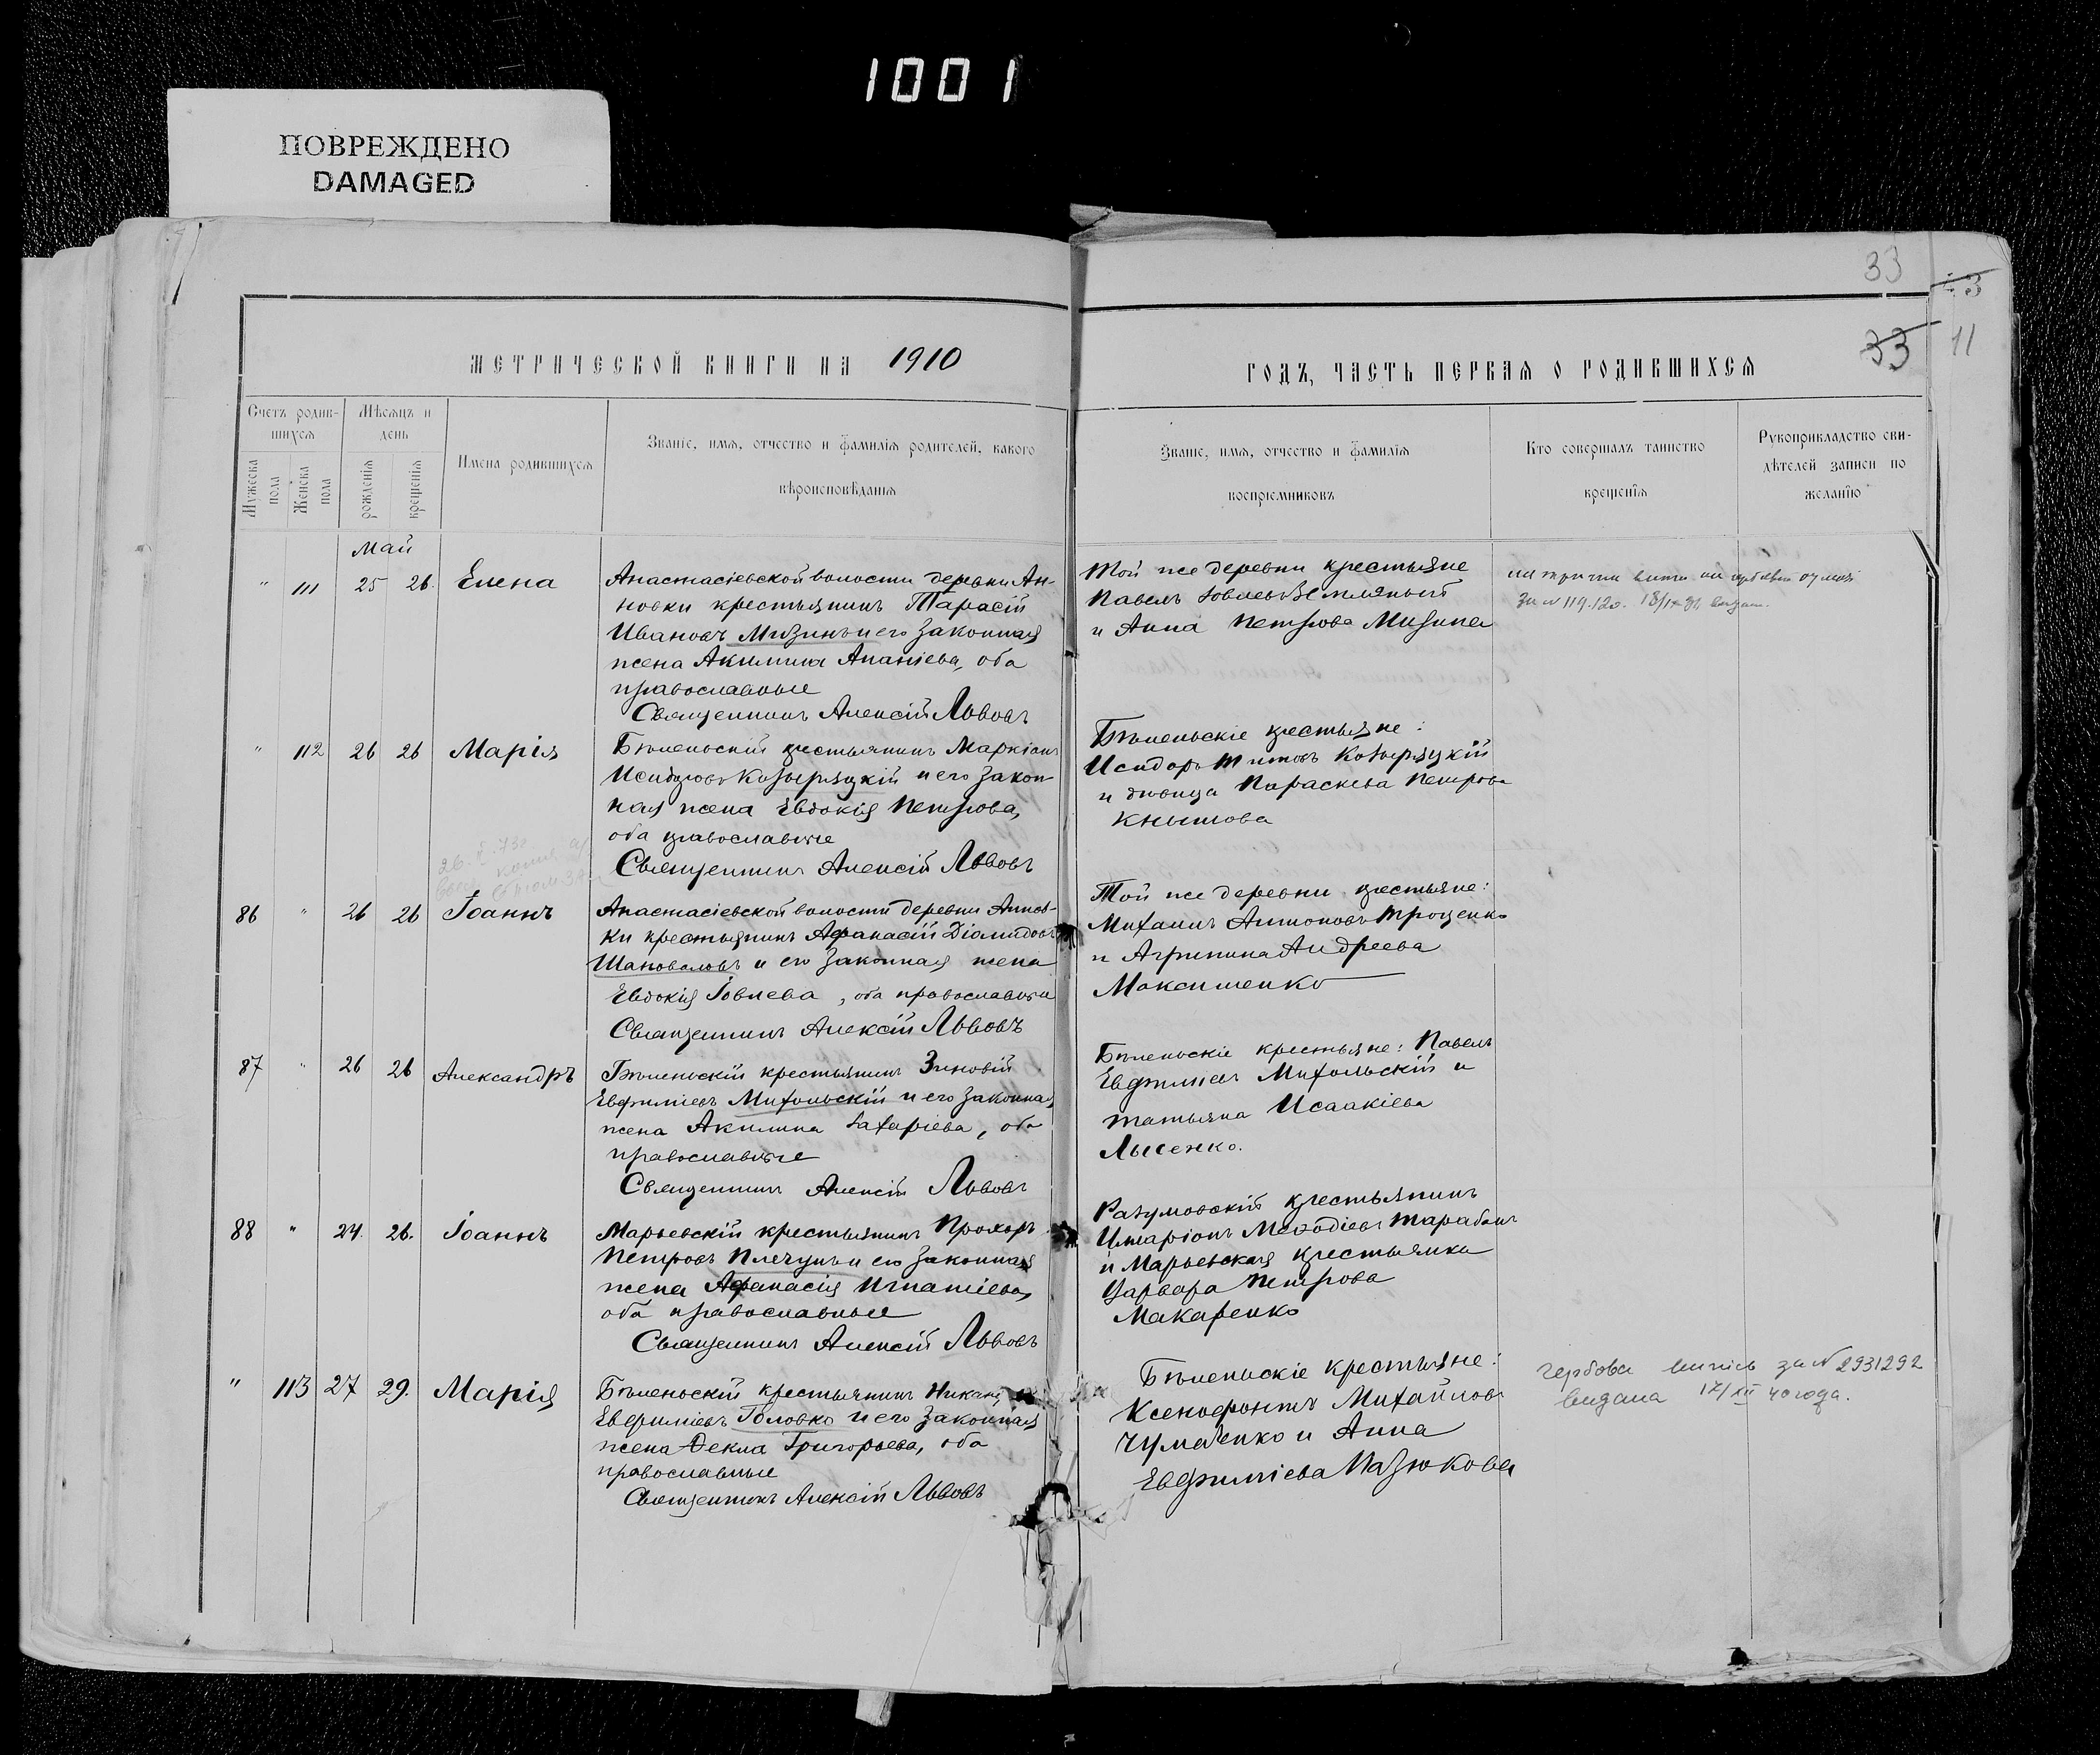 1001
ПОВРЕЖДЕНО
DAMAGED
33
33
11
МЕТРИЧЕСКОЙ КНИГИ НА 1910
ГОДЪ, ЧАСТЬ ПЕРВАЯ О РОДИВШИХСЯ
Счетъ родив-
шихся
Мужеска пола
Женска пола
Мѣсяцъ и
день
рожденія
крещенія
Имена родившихся
Званіе, имя, отчество и фамилія родителей, какого
вѣроисповѣданія
Званіе, имя, отчество и фамилія
воспріемниковъ
Кто совершалъ таинство
крещенія
Рукоприкладство сви-
дѣтелей записи по
желанію
Май
" 111 25 26. Елена
Анастасіевской волости деревни Ан-
новки крестьянинъ Тарасій
Ивановъ Мизинъ и его законная
жена Акилина Ананіева, оба
православные
Священникъ Алексій Львовъ
Той же деревни крестьяне
Павелъ Іовлевъ Земляный
и Анна Петрова Мизина
за № 119.120. 18/IX
" 112 26 26 Марія
Бѣленьскій крестьянинъ Маркіанъ
Исидоровъ Козыряцкій и его закон-
ная жена Евдокія Петрова,
оба православные
Священникъ Алексій Львовъ
Бѣленьскіе крестьяне:
Исидоръ Титовъ Козыряцкій
и дѣвица Параскева Петрова
Кнышова
86 " 26 26 Іоаннъ
Анастасіевской волости деревни Аннов-
ки крестьянинъ Афанасій Діомидовъ
Шаповаловъ и его законная жена
Евдокія Іовлева, оба православные
Священникъ Алексій Львовъ
Той же деревни крестьяне:
Михаилъ Антоновъ Троценко
и Агрипина Андреева
Максименко
87 " 26 26 Александръ
Бѣленьскій крестьянинъ Зиновій
Евфиміевъ Михольскій и его законная
жена Акилина Захаріева, оба
православные
Священникъ Алексій Львовъ
Бѣленьскіе крестьяне: Павелъ
Евфиміевъ Михольскій и
Татьяна Исаакіева
Лысенко.
88 " 24. 26. Іоаннъ
Марьевскій крестьянинъ Прохоръ
Петровъ Плечунъ и его законная
жена Афанасія Игнатіева,
оба православные
Священникъ Алексій Львовъ
Разумовскій крестьянинъ
Иларіонъ Меѳодіевъ Тарабанъ
и Марьевская крестьянка
Варвара Петрова
Макаренко
" 113 27 29. Марія
Бѣленьскій крестьянинъ
Евфиміевъ Головко и его законная
жена Ѳекла Григорьева, оба
православные
Священникъ Алексій Львовъ
Бѣленьскіе крестьяне:
Ксенофонтъ Михайловъ
Чумаченко и Анна
Евфиміева Мазюкова
гербова випись за № 2931292
видана 17/XII 40 года.